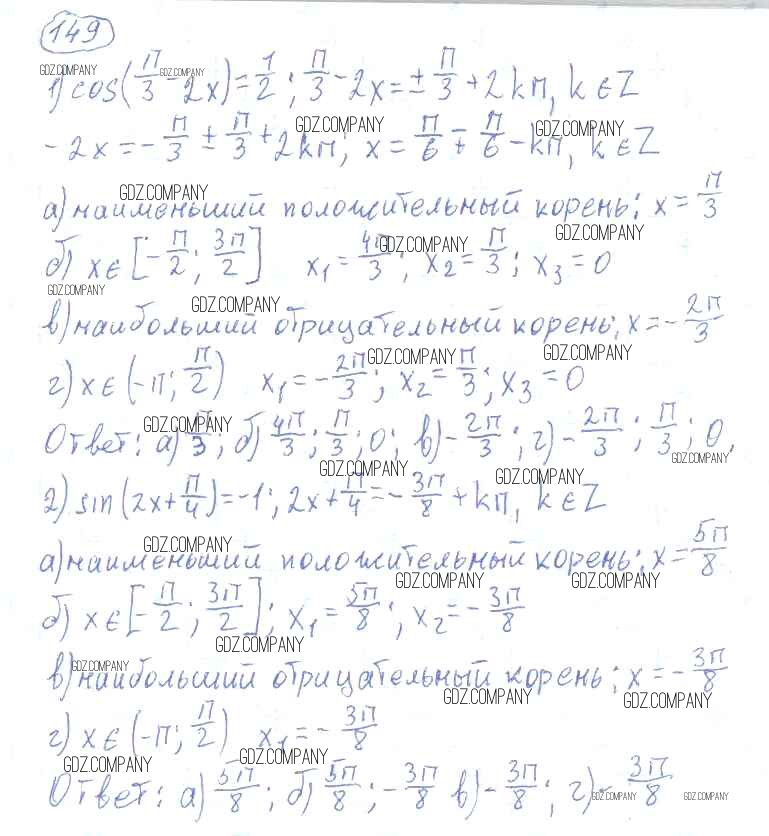 149
1) cos(π/3 - 2x) = 1/2; π/3 - 2x = ± π/3 + 2kπ, k ∈ Z
- 2x = - π/3 ± π/3 + 2kπ; x = π/6 ∓ π/6 - kπ, k ∈ Z
а) наименьший положительный корень: x = π/3
б) x ∈ [- π/2; 3π/2] x₁ = 4π/3; x₂ = π/3; x₃ = 0
в) наибольший отрицательный корень; x = - 2π/3
г) x ∈ (-π; π/2) x₁ = - 2π/3; x₂ = π/3; x₃ = 0
Ответ: а) π/3; б) 4π/3; π/3; 0; в) - 2π/3; г) - 2π/3; π/3; 0,
2) sin(2x + π/4) = -1; 2x + π/4 = - 3π/8 + kπ, k ∈ Z
а) наименьший положительный корень; x = 5π/8
б) x ∈ [- π/2; 3π/2]; x₁ = 5π/8; x₂ = - 3π/8
в) наибольший отрицательный корень; x = - 3π/8
г) x ∈ (-π; π/2) x₁ = - 3π/8
Ответ: а) 5π/8; б) 5π/8; - 3π/8 в) - 3π/8; г) - 3π/8
GDZ.COMPANY